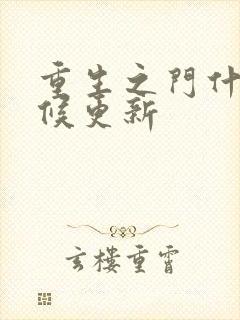 重生之門什
候更新
玄楼重霄